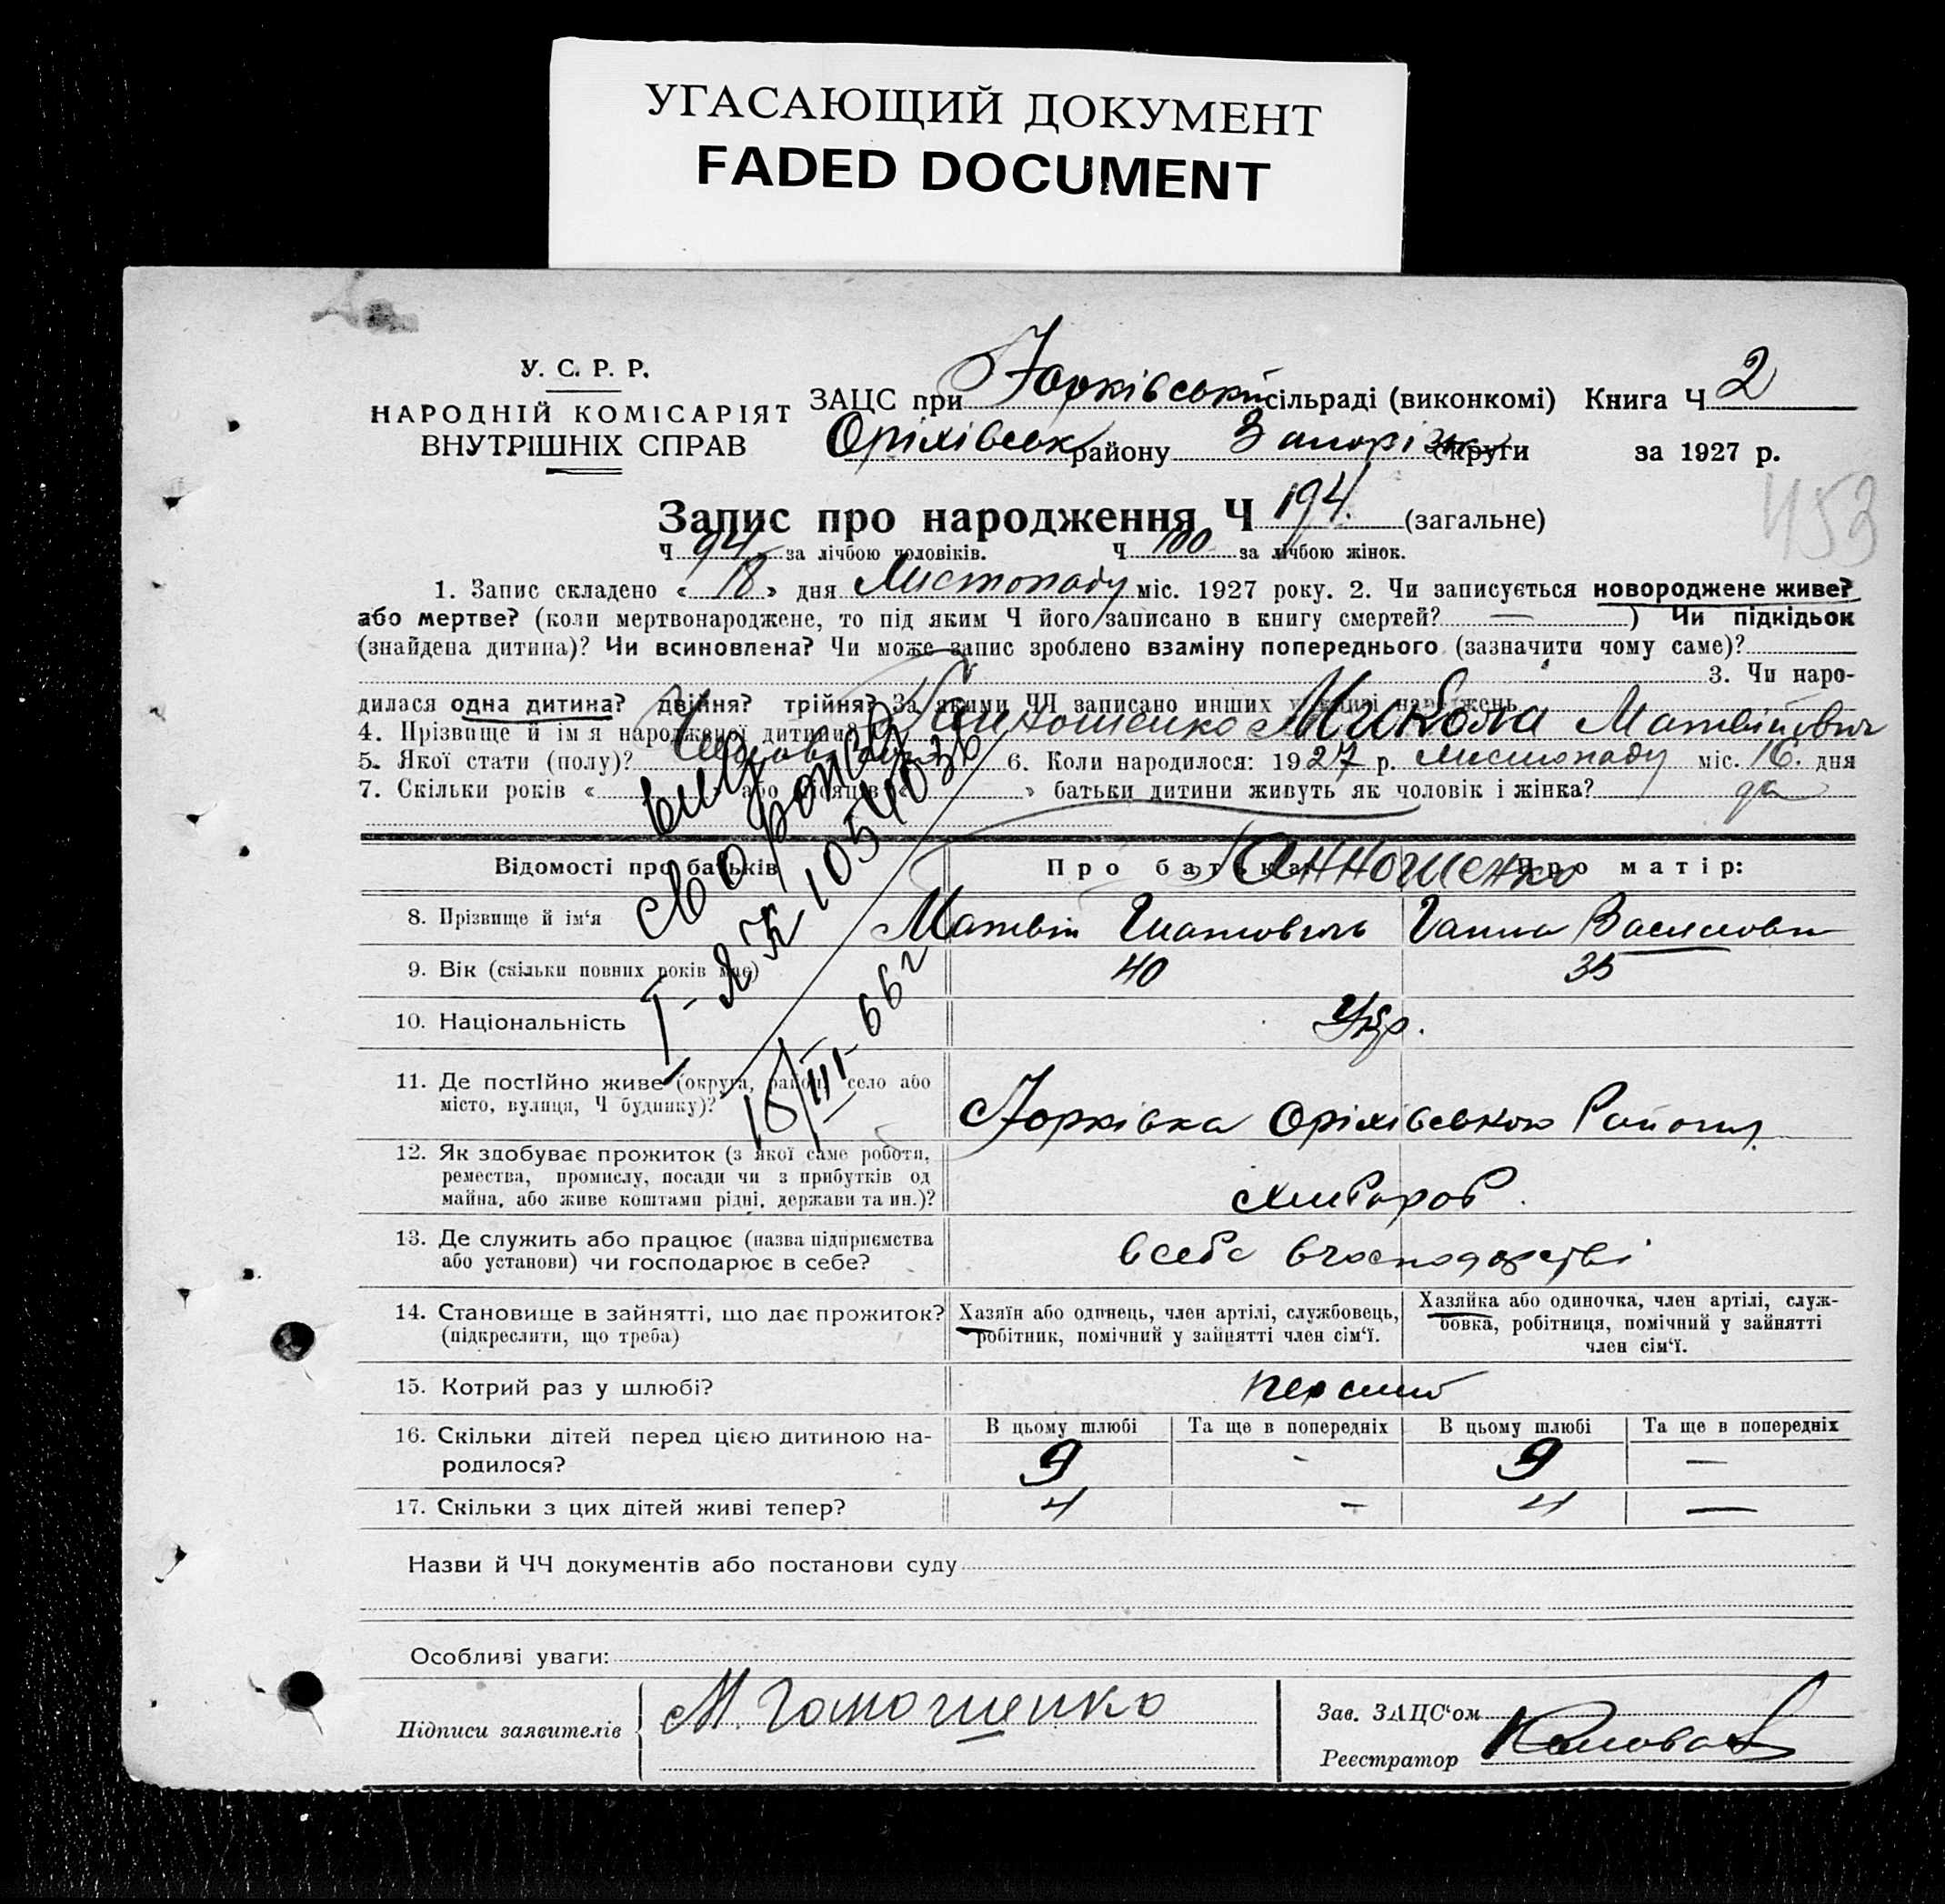 УГАСАЮЩИЙ ДОКУМЕНТ
FADED DOCUMENT
У. С. Р. Р.
НАРОДНІЙ КОМІСАРІЯТ
ВНУТРІШНІХ СПРАВ
ЗАЦС при Юрківській сільраді (виконкомі) Книга Ч 2
Оріхівськ району Запоріж округи за 1927 р.
453
Запис про народження Ч 194. (загальне)
Ч 94 за лічбою чоловіків. Ч 100 за лічбою жінок.
1. Запис складено « 18 » дня Листопаду міс. 1927 року. 2. Чи записується новороджене живе?
або мертве? (коли мертвонароджене, то під яким Ч його записано в книгу смертей? — ) Чи підкідьок
(знайдена дитина)? Чи всиновлена? Чи може запис зроблено взаміну попереднього (зазначити чому саме)?
3. Чи наро-
дилася одна дитина? двійня? трійня? За якими ЧЧ записано инших у книзі народжень
4. Прізвище й ім'я народженої дитини? Ганношенко Микола Матвійович
5. Якої стати (полу)? 6. Коли народилося: 1927 р. листопаду міс. 16. дня
7. Скільки років « » або місяців « » батьки дитини живуть як чоловік і жінка? да
Відомості про батьків Про батька: Про матір:
Ганношенко
8. Прізвище й ім'я Матвій Гнатович Ганна Василовн
9. Вік (скільки повних років має) 40 35
10. Національність Укр.
11. Де постійно живе (округа, район, село або
місто, вулиця, Ч будинку)? Юрківка Оріхівського Району
12. Як здобуває прожиток (з якої саме роботи,
ремества, промислу, посади чи з прибутків од
майна, або живе коштами рідні, держави та ин.)? хлібороб.
13. Де служить або працює (назва підприємства
або установи) чи господарює в себе? в себе в господарстві
14. Становище в зайнятті, що дає прожиток?
(підкреслити, що треба)
Хазяїн або одинець, член артілі, службовець,
робітник, помічний у зайнятті член сім'ї.
Хазяйка або одиночка, член артілі, служ-
бовка, робітниця, помічний у зайнятті
член сім'ї.
15. Котрий раз у шлюбі? перший
В цьому шлюбі Та ще в попередніх В цьому шлюбі Та ще в попередніх
16. Скільки дітей перед цією дитиною на-
родилося? 9 - 9 —
17. Скільки з цих дітей живі тепер? 4 - 4 —
Назви й ЧЧ документів або постанови суду
Особливі уваги:
Підписи заявителів М. Ганошенко
Зав. ЗАЦС'ом
Реєстратор
I-ЯК 1054036
18/III-66 г